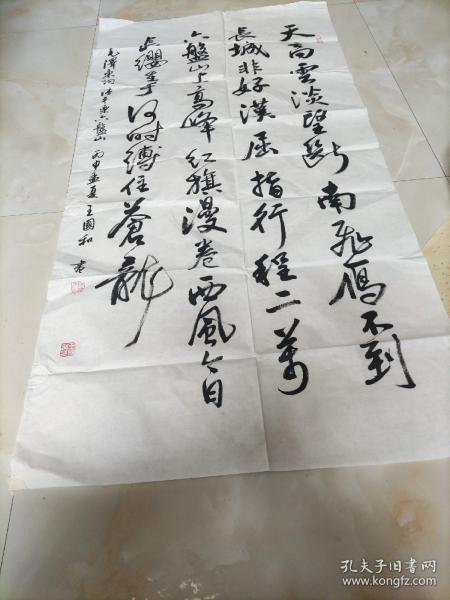 天高雲淡望斷南飛鴈不到
長城非好漢屈指行程二萬
六盤山上高峰紅旗漫卷西風今日
長纓在手何时縛住蒼龍
毛澤東詞清平樂六盤山 丙申孟夏 王國和 書
孔夫子旧书网
www.kongfz.com